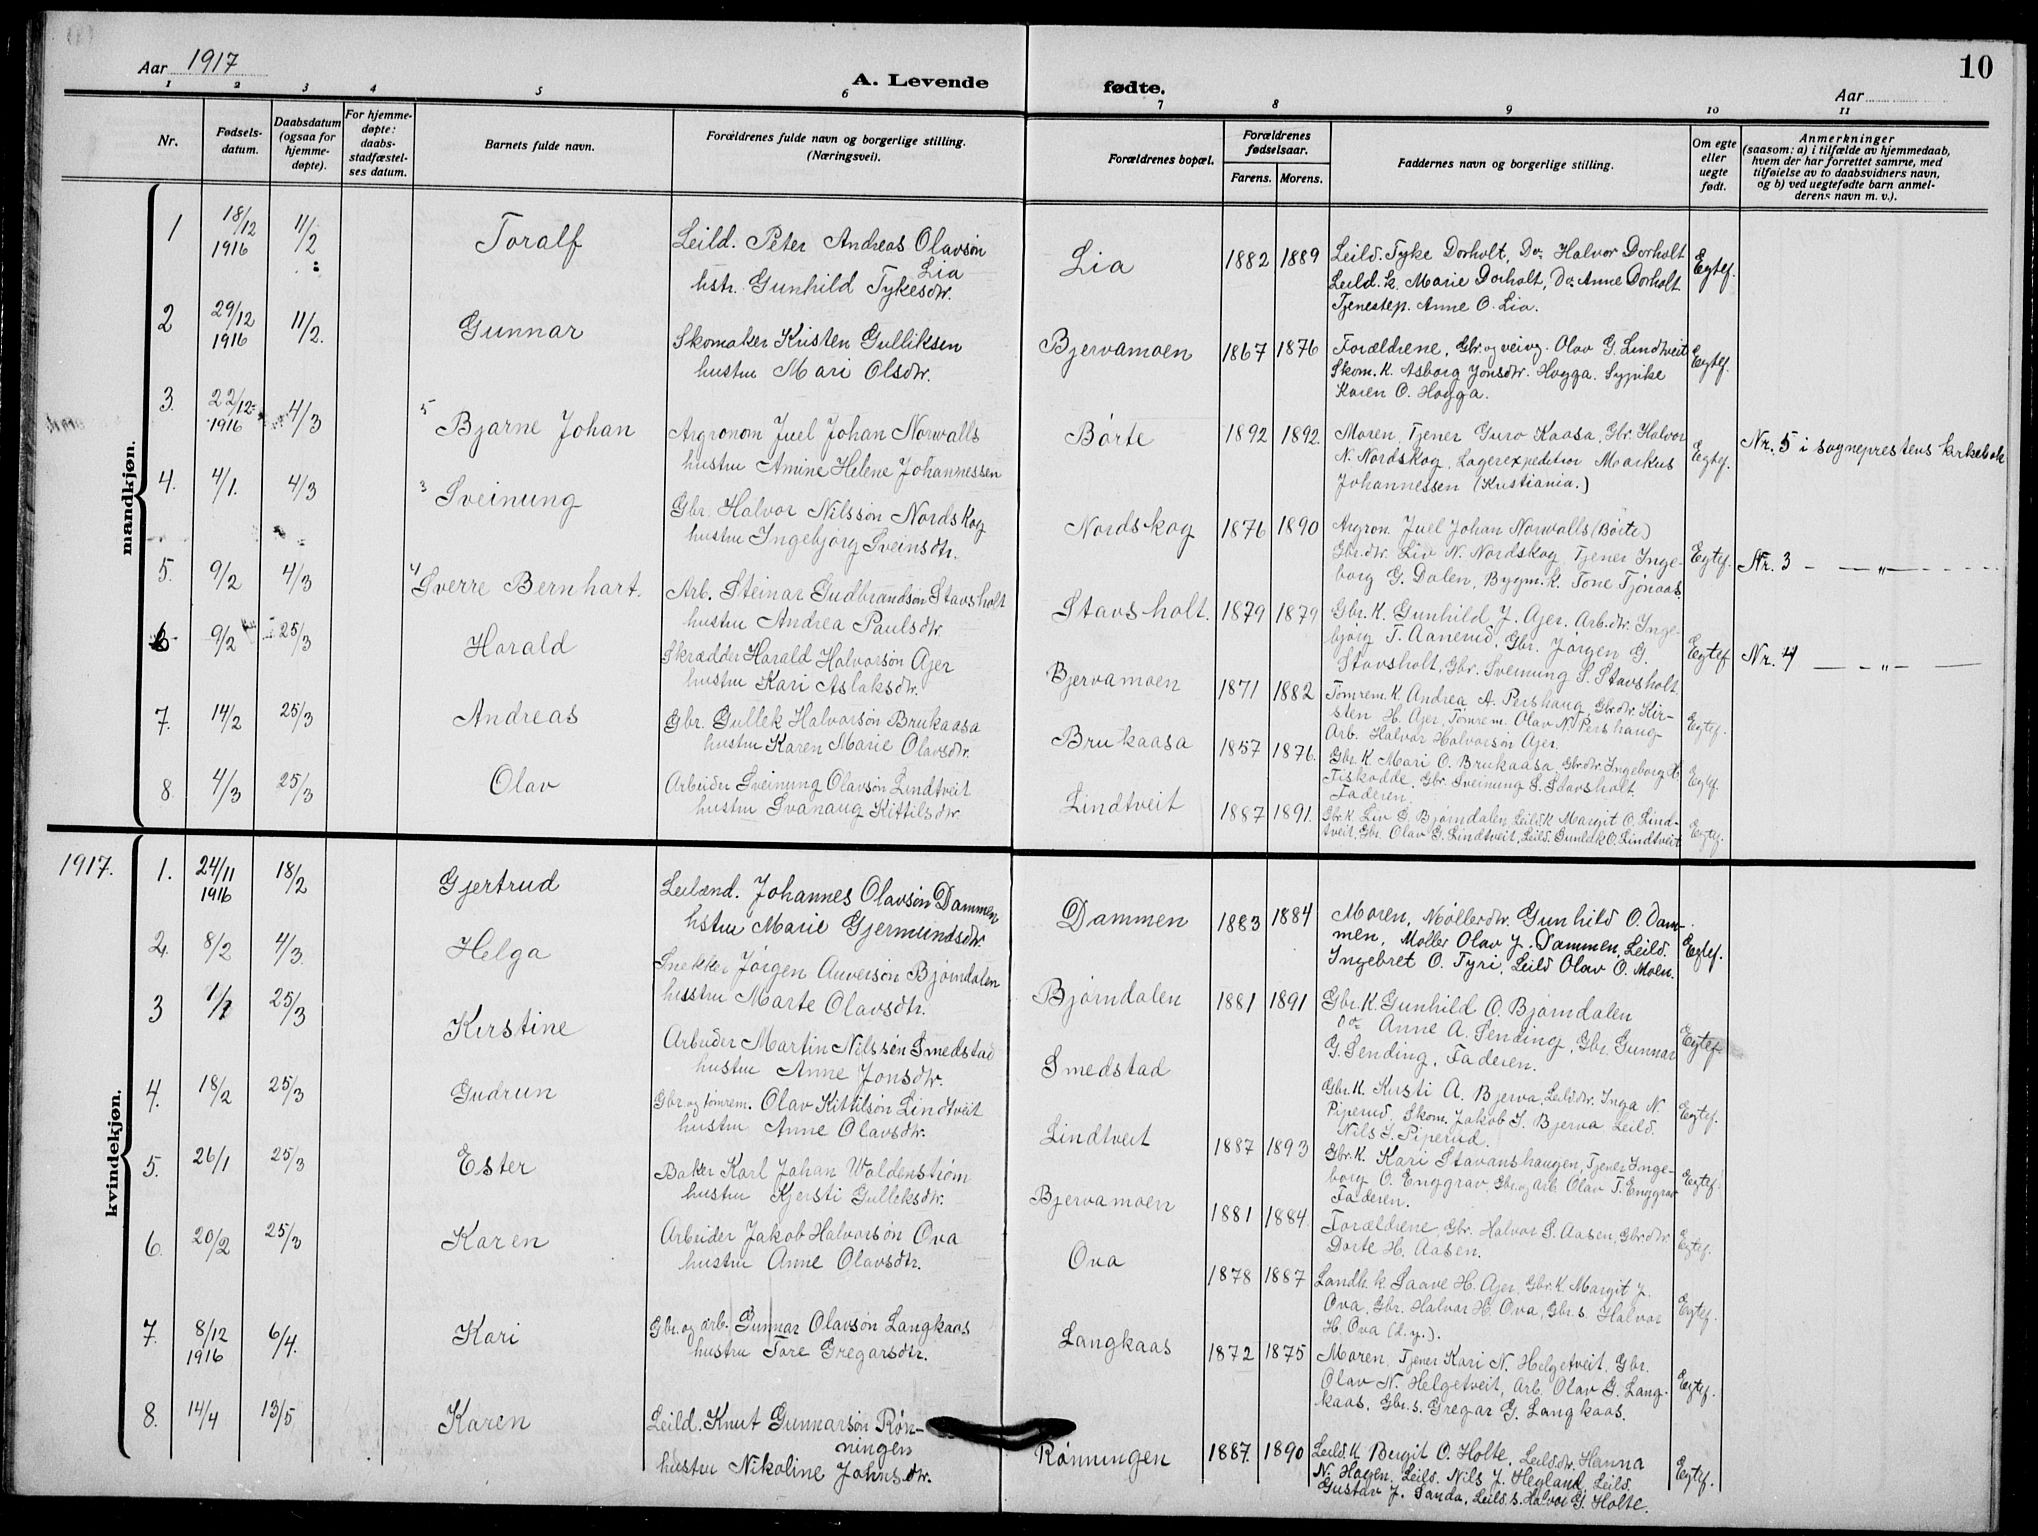 10
Aar 1917
A. Levende
fødte.
Aar
1 2 3 4 5 6 7 8 9 10 11
Nr.
Fødsels-
datum.
Daabsdatum
(ogsaa for
hjemme-
døpte).
For hjemme-
døpte:
daabs-
stadfæstel-
ses datum.
Barnets fulde navn.
Forældrenes fulde navn og borgerlige stilling.
(Næringsvei).
Forældrenes bopæl.
Forældrenes
fødselsaar.
Farens. Morens.
Faddernes navn og borgerlige stilling.
Om egte
eller
uegte
født.
Anmerkninger
(saasom: a) i tilfælde av hjemmedaab,
hvem der har forrettet samme, med
tilføielse av to daabsvidners navn,
og b) ved uegtefødte barn anmel-
derens navn m. v.).
mandkjøn.
1 18/12 1916 11/2 Toralf
Leild. Peter Andreas Olavsøn
Lia
hstr. Gunhild Tykesdtr.
Lia 1882 1889
Leild. Tyke Dorholt, Do. Halvor Dorholt
Leild. k. Marie Dorholt, Do. Anne Dorholt
Tjenestep. Anne O. Lia.
Egtef.
2 29/12 1916 11/2. Gunnar
Skomaker Kristen Gulliksen
hustru Mari Olsdtr.
Bjervamoen 1867 1876
Forældrene, Gbr. og veivg. Olav G. Lindtveit
Skom. K. Asborg Jonsdtr. Hogga. Sypike
Karen O. Hogga.
Egtef.
3. 22/12 1916 4/3 5 Bjarne Johan
Argronom Juel Johan Norwalls
hustru Amine Helene Johannessen
Børte 1892 1892.
Moren, Tjener Guro Kaasa, Gbr. Halvor
N. Nordskog, Lagerexpeditior Markus
Johannessen (Kristiania.)
Egtef.
Nr. 5 i sogneprestens kirkebok
4. 4/1. 4/3 3 Sveinung
Gbr. Halvor Nilssøn Nordskog
hustru Ingebjorg Sveinsdtr.
Nordskog 1876 1890
Argron. Juel Johan Norwalls (Børte)
Gbr.dtr. Liv N. Nordskog, Tjener Inge-
borg G. Dalen, Bygm. K. Tone Tjønaas.
Egtef.
Nr. 3 — — „ — —
5. 9/2 4/3 4 Sverre Bernhart.
Arb. Steinar Gudbrandsøn Stavsholt
hustru Andrea Paulsdtr.
Stavsholt. 1879 1879
Gbr. K. Gunhild J. Ajer. Arb. dtr. Inge-
bjørg T. Aanerud, Gbr. Jørgen G.
Stavsholt, Gbr. Sveinung S. Stavsholt.
Egtef
Nr. 4 — — „ — —
6 9/2 25/3 Harald
Skrædder Harald Halvorsøn Ajer
hustru Kari Aslaksdtr.
Bjervamoen 1871 1882
Tømrem. K. Andrea A. Pershaug Gbr.dtr. Kir-
sten H. Ajer, Tømrem. Olav N. Pershaug
Arb. Halvor Halvorsøn Ajer.
Egtef.
7. 14/2 25/3 Andreas
Gbr. Gullek Halvorsøn Brukaasa
hustru Karen Marie Olavsdtr.
Brukaasa 1857 1876.
Gbr. K. Mari O. Brukaasa, Gbr.dtr. Ingeborg H.
Fiskodde, Gbr. Sveinung S. Stavsholt.
Faderen.
Egtef.
8 4/3 25/3 Olav
Arbeider Sveinung Olavsøn Lindtveit
hustru Svanaug Kittilsdtr.
Lindtveit 1887 1891.
Gbr. k. Liv G. Bjørndalen, Leild. K. Margit O. Lind-
tveit, Gbr. Olav G. Lindtveit, Leild. Gunlek O. Lindtveit
Egtef.
1917.
kvindekjøn.
1. 24/11 1916 18/2 Gjertrud
Leilænd. Johannes Olavsøn Dammen
hstru Marie Gjermundsdtr
Dammen 1883 1884
Moren, Møllerdtr. Gunhild O. Dam-
men, Møller Olav J. Dammen, Leild.
Ingebret O. Tyri, Leild Olav O. Moen.
Egtef.
2. 8/2 4/3. Helga
Snekker Jørgen Anversøn Bjørndalen
husstru Marte Olavsdtr.
Bjørndalen 1881 1891
Gbr. K. Gunhild O. Bjørndalen
Do. Anne A. Sending, Gbr. Gunnar
G. Sending, Faderen.
Egtef.
3 1/1 25/3 Kirstine
Arbeider Martin Nilssøn Smedstad
hustru Anne Jonsdtr.
Smedstad
Gbr. K. Kirsti A. Bjerva, Leild.dtr. Inga N.
Piperud, Skom. Jakob J. Bjerva Leild.
Nils J. Piperud.
Egtef.
4. 18/2 25/3 Gudrun
Gbr. og tømrem. Olav Kittilsøn Lindtveit
hustru Anne Olavsdtr.
Lindtveit 1887 1893
Gbr. K. Kari Stavanshaugen, Tjener Inge-
borg O. Enggrav, Gbr. og arb. Olav T. Enggrav
Faderen.
Egtef.
5. 26/1 25/3 Ester
Baker Karl Johan Woldenstrøm
hustru Kjersti Gulleksdtr.
Bjervamoen 1881 1884.
Forældrene, Gbr. Halvor S. Aasen, Gbr.dtr.
Dorte H. Aasen.
Egtef.
6. 20/2 25/3 Karen
Arbeider Jakob Halvorsøn Ova
hustru Anne Olavsdtr.
Ova 1878 1887
Landh. k. Saave H. Ajer, Gbr. K. Margit J.
Ova, Gbr. Halvor H. Ova, Gbr. s. Halvor
H. Ova (d.y.).
Egtef.
7. 8/12 1916 6/4. Kari
Gbr. og arb. Gunnar Olavsøn Langkaas
hustru Tore Gregarsdtr.
Langkaas 1872 1875
Moren, Tjener Kari N. Helgetveit, Gbr.
Olav N. Helgetveit, Arb. Olav G. Lang-
kaas, Gbr. s. Gregar G. Langkaas.
Egtef.
8. 14/4 13/5 Karen
Leild. Knut Gunnarsøn Røn-
ningen
hustru Nikoline Johnsdtr.
Rønningen 1887. 1890
Leild. K. Bergit O. Holte, Leild.dtr. Hanna
N. Hagen, Leild. Nils J. Hegland, Leild.
Gustav J. Sanda, Leild. s. Halvor G. Holte.
Egtef.